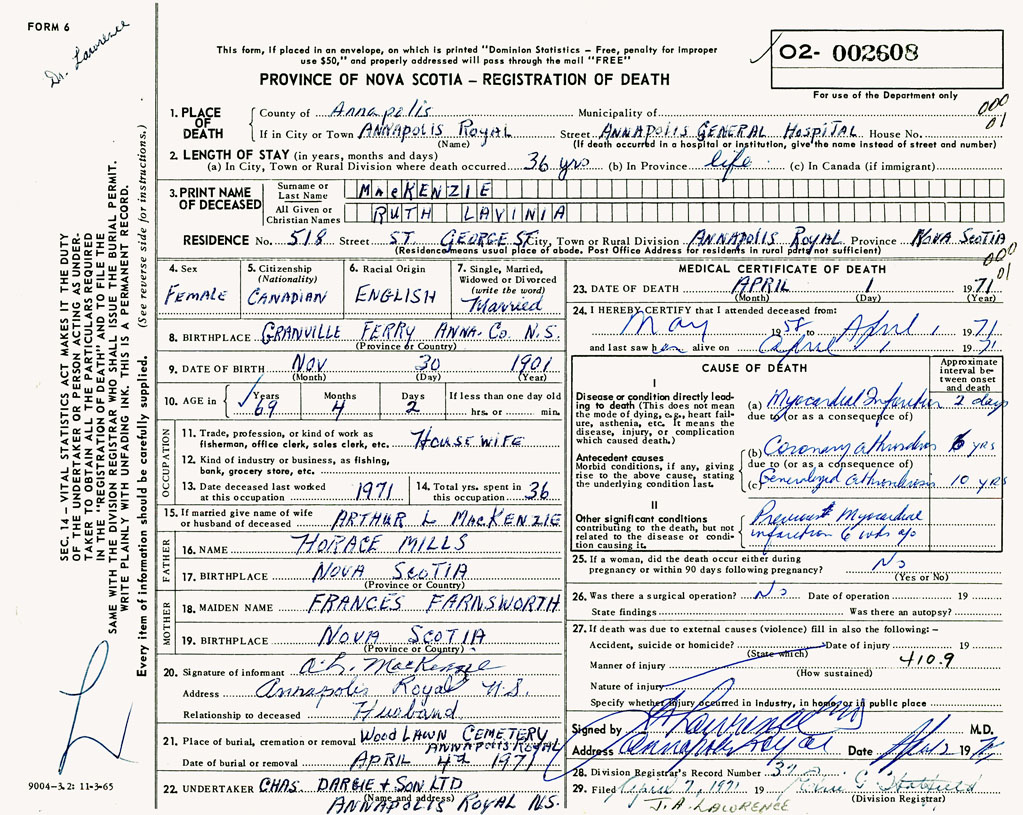 FORM 6
Dr. Lawrence
This form, if placed in an envelope, on which is printed "Dominion Statistics – Free, penalty for improper
use $50," and properly addressed will pass through the mail "FREE"
PROVINCE OF NOVA SCOTIA – REGISTRATION OF DEATH
02- 002608
For use of the Department only
000
01
1. PLACE OF DEATH
County of Annapolis Municipality of
If in City or Town ANNAPOLIS ROYAL Street ANNAPOLIS GENERAL HOSPITAL House No.
(Name) (If death occurred in a hospital or institution, give the name instead of street and number)
2. LENGTH OF STAY (in years, months and days)
(a) In City, Town or Rural Division where death occurred 36 yrs (b) In Province life (c) In Canada (if immigrant)
3. PRINT NAME OF DECEASED
Surname or Last Name MacKENZIE
All Given or Christian Names RUTH LAVINIA
RESIDENCE No. 518 Street ST. GEORGE ST. City, Town or Rural Division ANNAPOLIS ROYAL Province NOVA SCOTIA
(Residence means usual place of abode. Post Office Address for residents in rural parts not sufficient)
000
01
4. Sex
FEMALE
5. Citizenship
(Nationality)
CANADIAN
6. Racial Origin
ENGLISH
7. Single, Married,
Widowed or Divorced
(write the word)
Married
8. BIRTHPLACE GRANVILLE FERRY ANNA. CO. N.S.
(Province or Country)
9. DATE OF BIRTH NOV 30 1901
(Month) (Day) (Year)
10. AGE in
Years 69
Months 4
Days 2
If less than one day old
hrs. or min.
OCCUPATION
11. Trade, profession, or kind of work as
fisherman, office clerk, sales clerk, etc. HOUSEWIFE
12. Kind of industry or business, as fishing,
bank, grocery store, etc.
13. Date deceased last worked
at this occupation 1971
14. Total yrs. spent in
this occupation 36
15. If married give name of wife
or husband of deceased ARTHUR L MacKENZIE
FATHER
16. NAME HORACE MILLS
17. BIRTHPLACE NOVA SCOTIA
(Province or Country)
MOTHER
18. MAIDEN NAME FRANCES FARNSWORTH
19. BIRTHPLACE NOVA SCOTIA
(Province or Country)
20. Signature of informant A. L. MacKenzie
Address Annapolis Royal N.S.
Relationship to deceased Husband
21. Place of burial, cremation or removal WOODLAWN CEMETERY
ANNAPOLIS ROYAL
Date of burial or removal APRIL 4th 1971
22. UNDERTAKER CHAS. DARGIE + SON LTD
(Name and address)
ANNAPOLIS ROYAL N.S.
MEDICAL CERTIFICATE OF DEATH
23. DATE OF DEATH APRIL 1 1971
(Month) (Day) (Year)
24. I HEREBY CERTIFY that I attended deceased from:
May 1958 to April 1 1971
and last saw her alive on April 1 1971
CAUSE OF DEATH
Approximate
interval be-
tween onset
and death
I
Disease or condition directly lead-
ing to death (This does not mean
the mode of dying, e.g., heart fail-
ure, asthenia, etc. It means the
disease, injury, or complication
which caused death.)
(a) Myocardial Infarction 2 days
due to (or as a consequence of)
Antecedent causes
Morbid conditions, if any, giving
rise to the above cause, stating
the underlying condition last.
(b) Coronary 6 yrs
due to (or as a consequence of)
(c) Generalized 10 yrs
II
Other significant conditions
contributing to the death, but not
related to the disease or condi-
tion causing it.
Previous Myocardial
infarction 6 wks ago
25. If a woman, did the death occur either during
pregnancy or within 90 days following pregnancy? No
(Yes or No)
26. Was there a surgical operation? No Date of operation 19
State findings Was there an autopsy?
27. If death was due to external causes (violence) fill in also the following: –
Accident, suicide or homicide? Date of injury 19
(State which)
Manner of injury 410.9
(How sustained)
Nature of injury
Specify whether injury occurred in Industry, in home, or in public place
Signed by Lawrence M.D.
Address Annapolis Royal Date Apr 2 1971
28. Division Registrar's Record Number 37
29. Filed April 7, 1971 19
(Division Registrar)
J.A. LAWRENCE
SEC. 14 – VITAL STATISTICS ACT MAKES IT THE DUTY
OF THE UNDERTAKER OR PERSON ACTING AS UNDER-
TAKER TO OBTAIN ALL THE PARTICULARS REQUIRED
IN THE "REGISTRATION OF DEATH" AND TO FILE THE
SAME WITH THE DIVISION REGISTRAR WHO SHALL ISSUE THE BURIAL PERMIT.
WRITE PLAINLY WITH UNFADING INK. THIS IS A PERMANENT RECORD.
Every item of information should be carefully supplied. (See reverse side for instructions.)
9004-3.2: 11-3-65